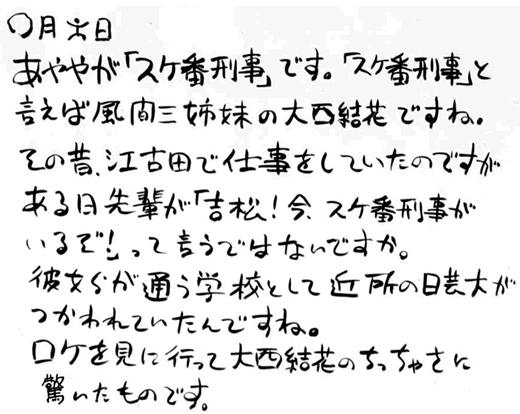 〇月六日
あややが「スケ番刑事」です。「スケ番刑事」と
言えば風間三姉妹の大西結花ですね。
その昔、江古田で仕事をしていたのですが
ある日先輩が「吉松!今、スケ番刑事が
いるぞ!」って言うではないですか。
彼女らが通う学校として近所の日芸大が
つかわれていたんですね。
ロケを見に行って大西結花のちっちゃさに
驚いたものです。